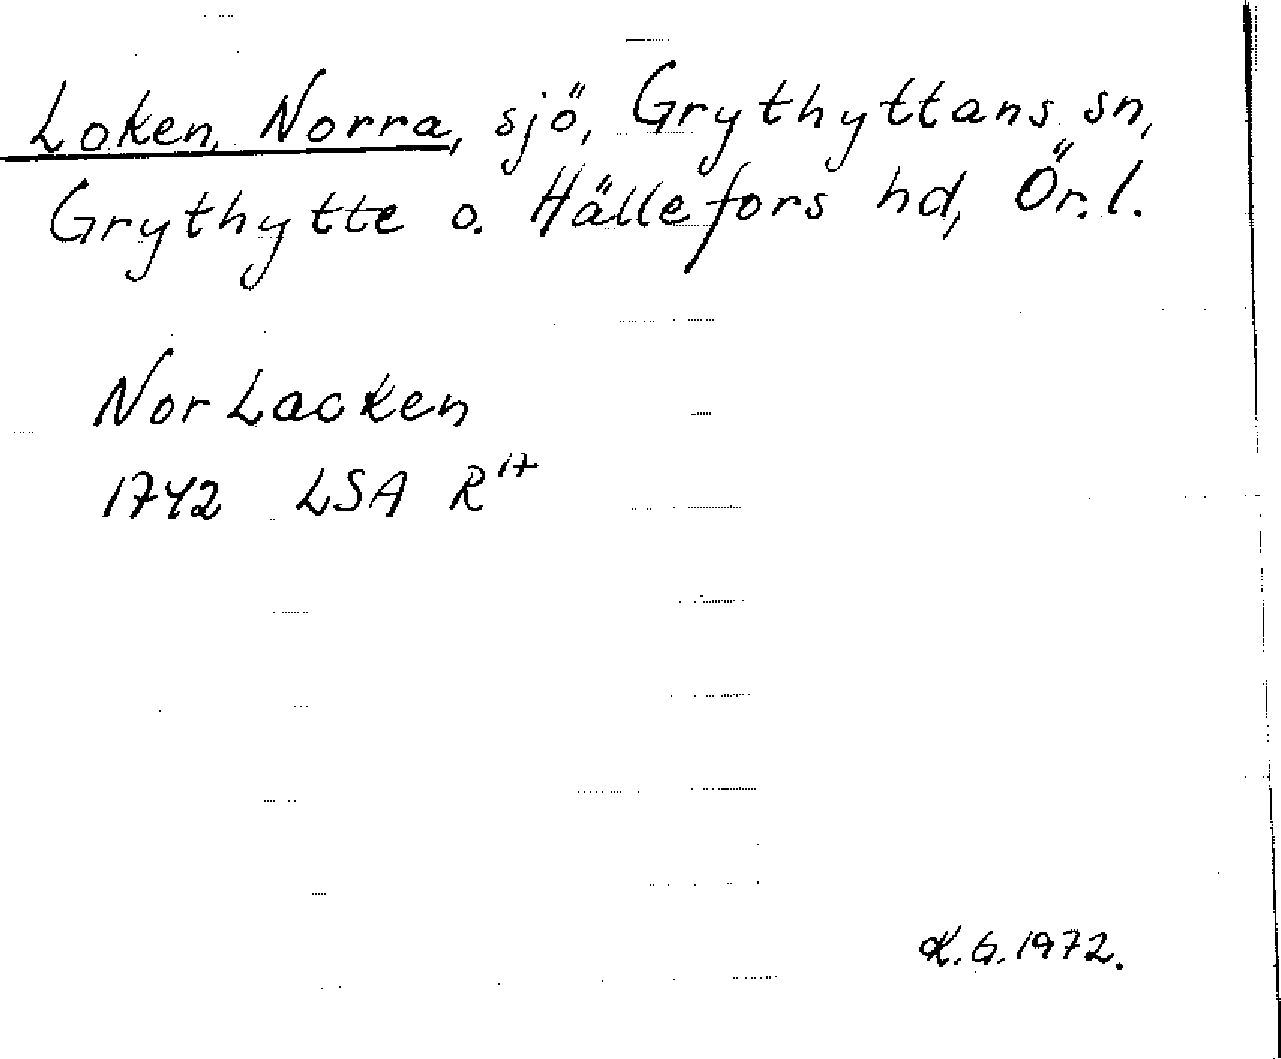 Loken, Norra, sjö, Grythyttans sn,
Grythytte o. Hällefors hd, Ör. l.
Nor Lacken
1742 LSA R 17
K.G. 1972.